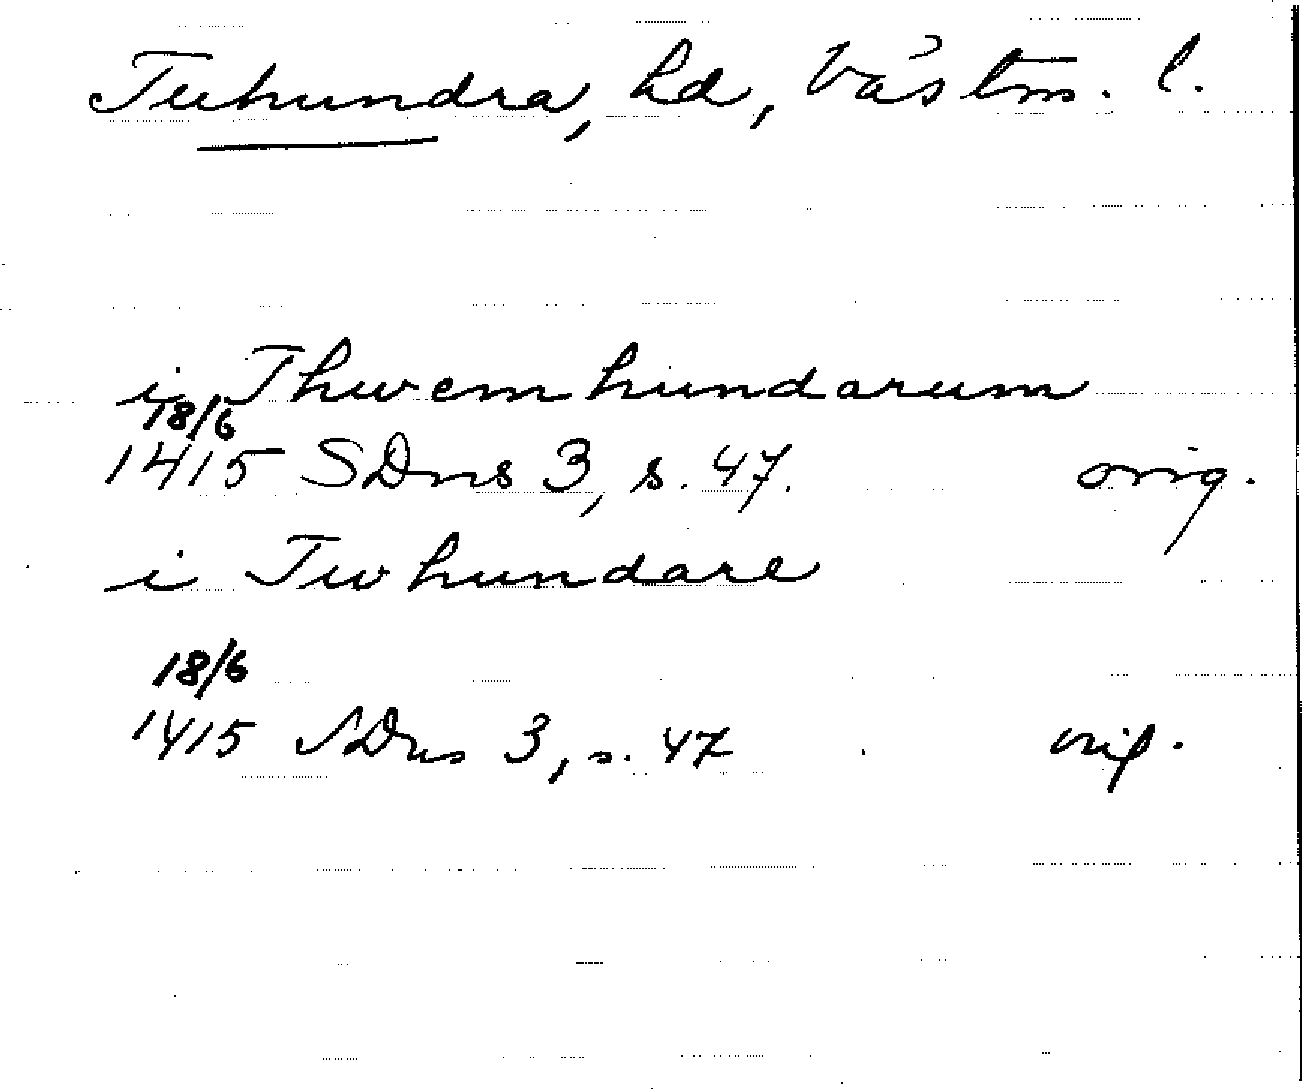 Tuhundra, hd, Västm. l.
i Thwem hundarum
18/6
1415 SDns 3, s. 47. orig.
i Tw hundare
18/6
1415 SDns 3, s. 47 orig.